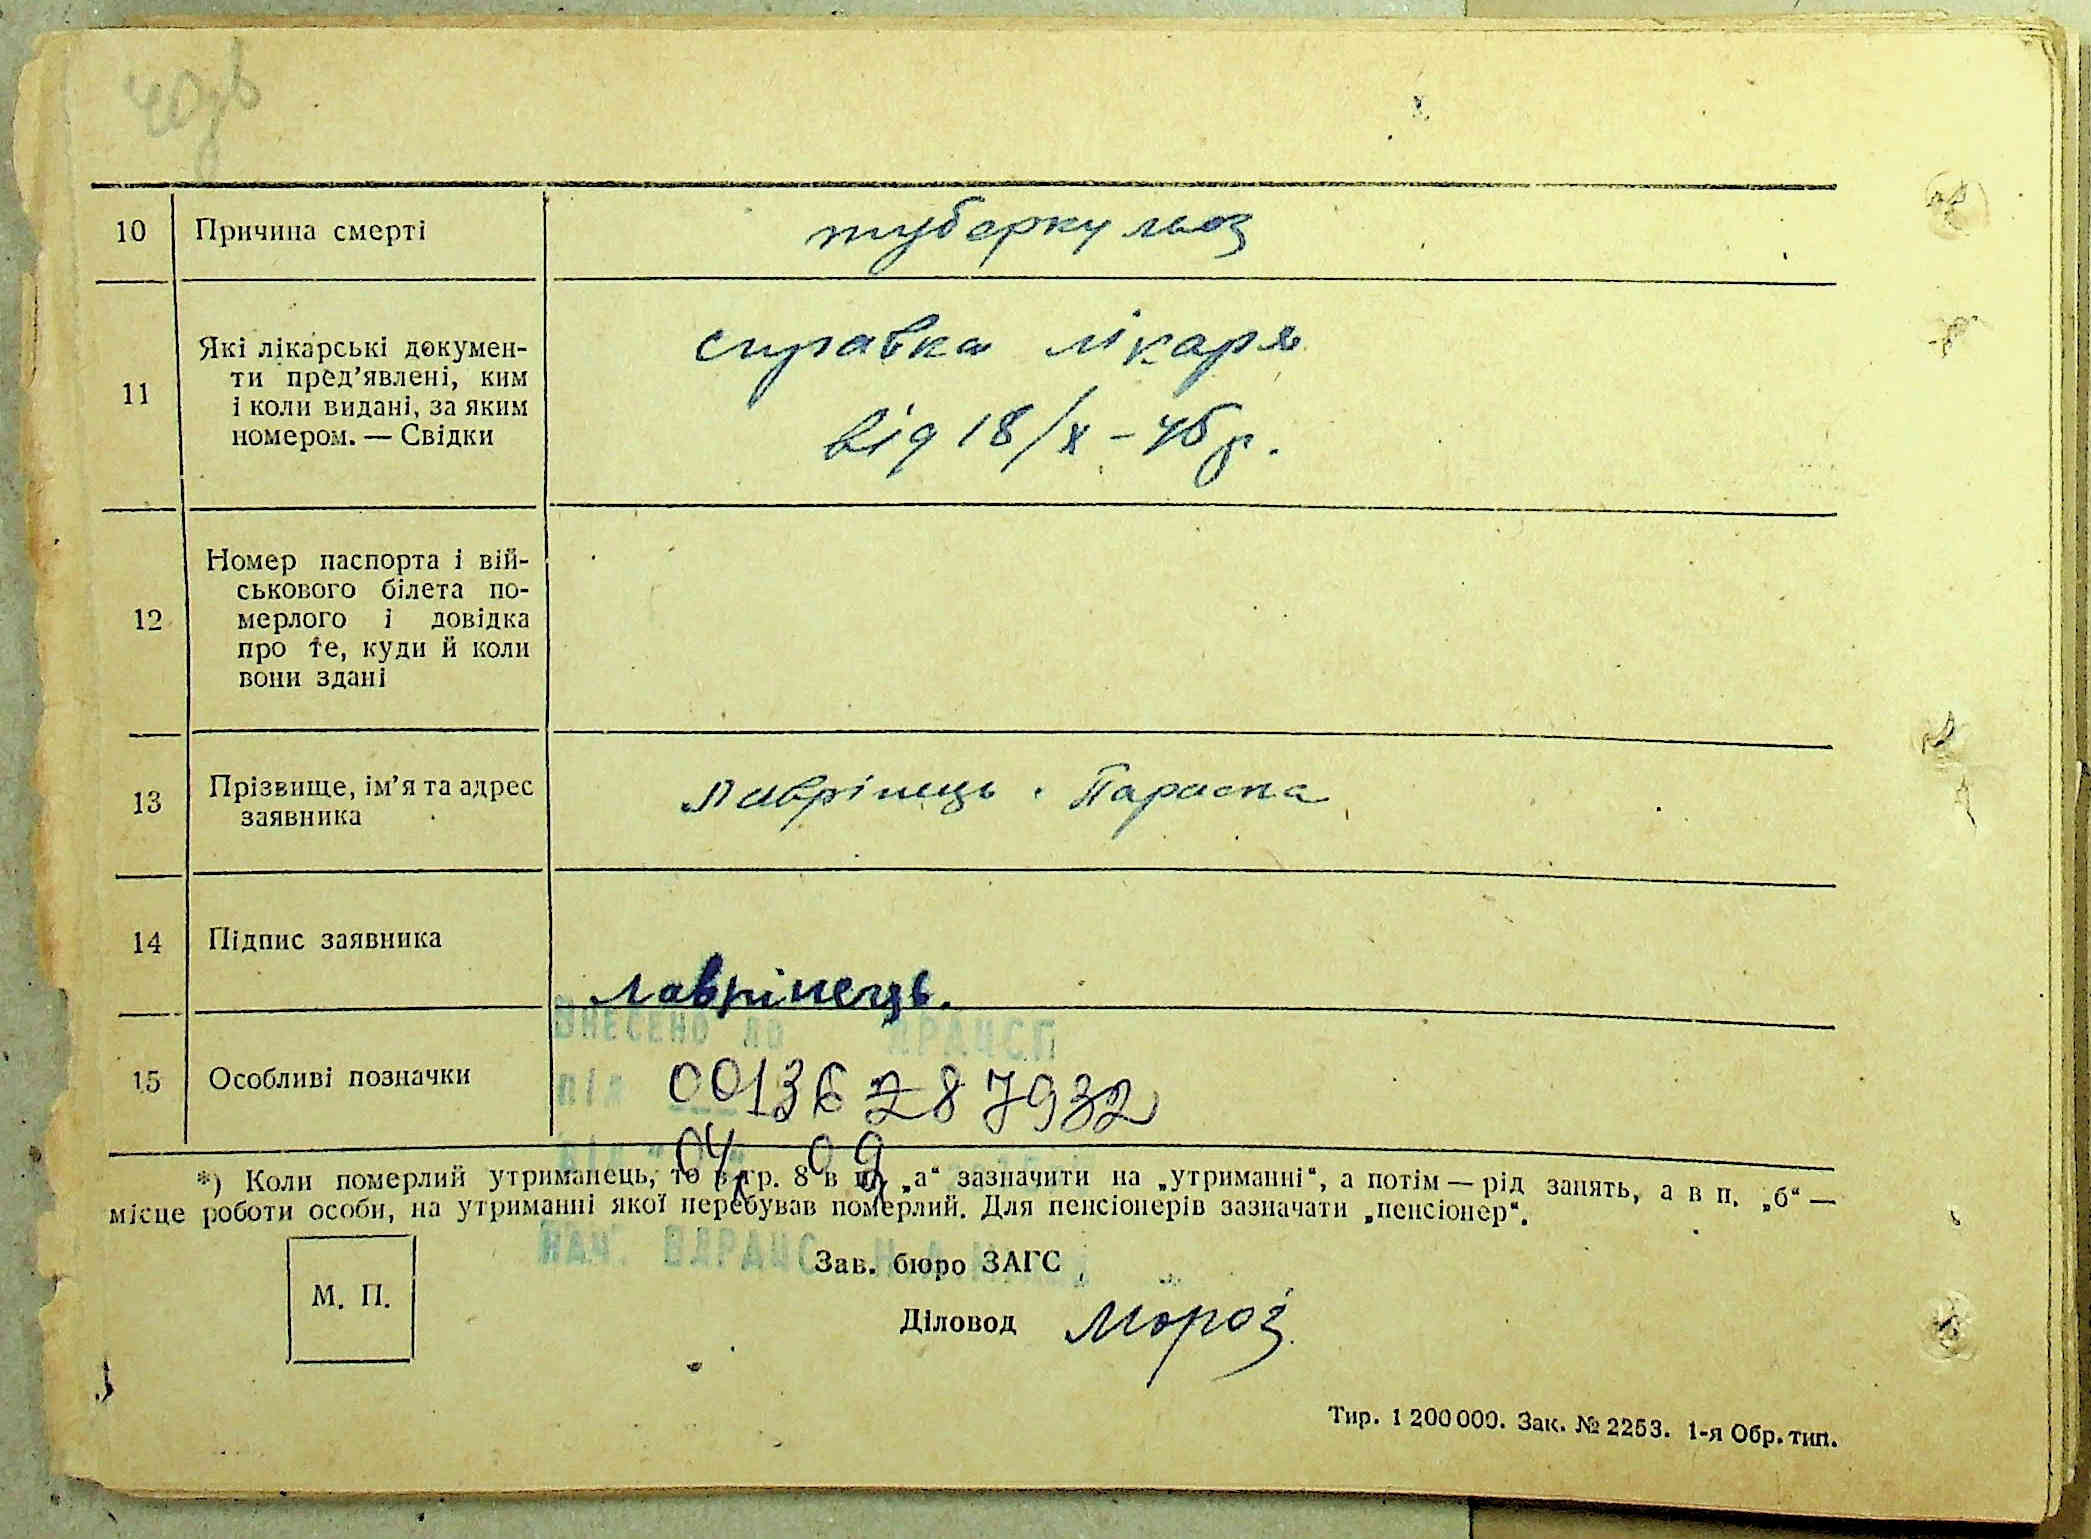 40зв
10 Причина смерті туберкульоз
11 Які лікарські докумен-
ти пред’явлені, ким
і коли видані, за яким
номером. — Свідки
справка лікаря
від 18/х – 45 р.
12 Номер паспорта і вій-
ськового білета по-
мерлого і довідка
про те, куди й коли
вони здані
13 Прізвище, ім’я та адрес
заявника
Лаврінець . Параска
14 Підпис заявника
Лаврінець.
Внесено до ДРАЦСГ
15 Особливі позначки
під 00136287932
від 04 09
*) Коли померлий утриманець, то в гр. 8 в п. „а“ зазначити на „утриманні“, а потім — рід занять, а в п. „б“ —
місце роботи особи, на утриманні якої перебував померлий. Для пенсіонерів зазначати „пенсіонер“.
Нач. ВДРАЦС
Зав. бюро ЗАГС
М. П.
Діловод Мороз
Тир. 1 200 000. Зак. № 2253. 1-я Обр. тип.